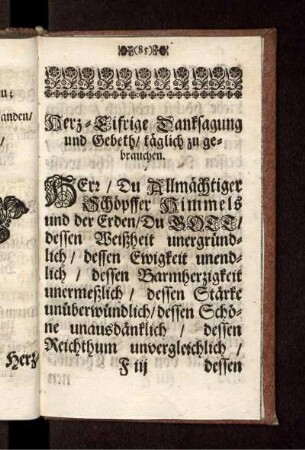 (85)
Herz-Eifrige Danksagung
und Gebeth/ täglich zu ge-
brauchen.
HErr/ Du Allmächtiger
Schöpffer Himmels
und der Erden/Du GOTT/
dessen Weißheit unergründ-
lich/ dessen Ewigkeit unend-
lich / dessen Barmherzigkeit
unermeßlich / dessen Stärke
unüberwündlich/dessen Schö-
ne unausdänklich / dessen
Reichthum unvergleichlich /
F iij dessen
anden/
Herz-